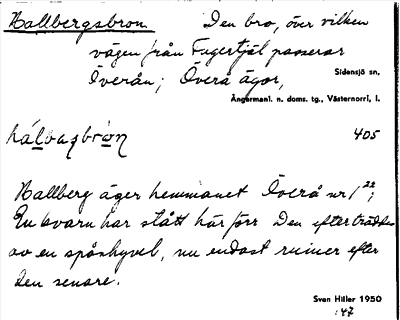 Hallbergsbron Den bro, över vilken
vägen från Fugertjäl passerar
Överån; Överå ägor,
Sidensjö sn,
Ångermanl. n. doms. tg., Västernorrl. l.
hálbaʒbròn 405
Hallberg äger hemmanet Överå nr 1²²;
En kvarn har stått här förr. Den efterträddes
av en spånhyvel, nu endast ruiner efter
den senare.
Sven Hiller 1950
:47